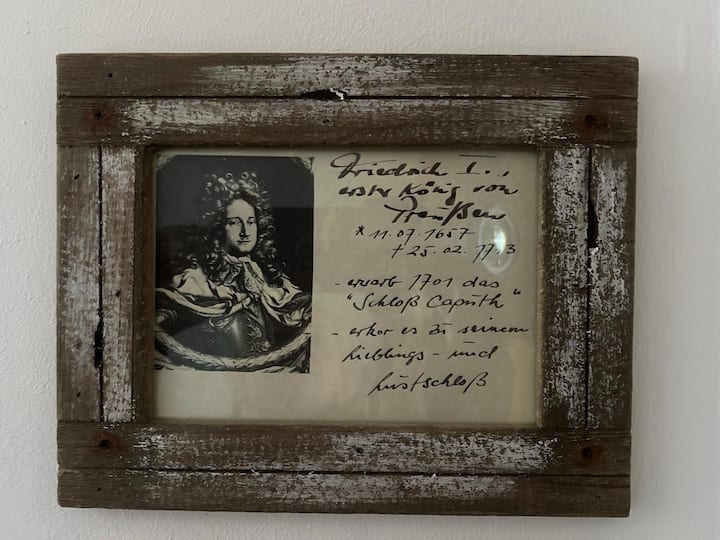 Friedrich I.,
erster König von
Preußen
* 11.07.1657
† 25.02.1713
- erwarb 1701 das
"Schloß Caputh"
- erkor es zu seinem
Lieblings- und
Lustschloß